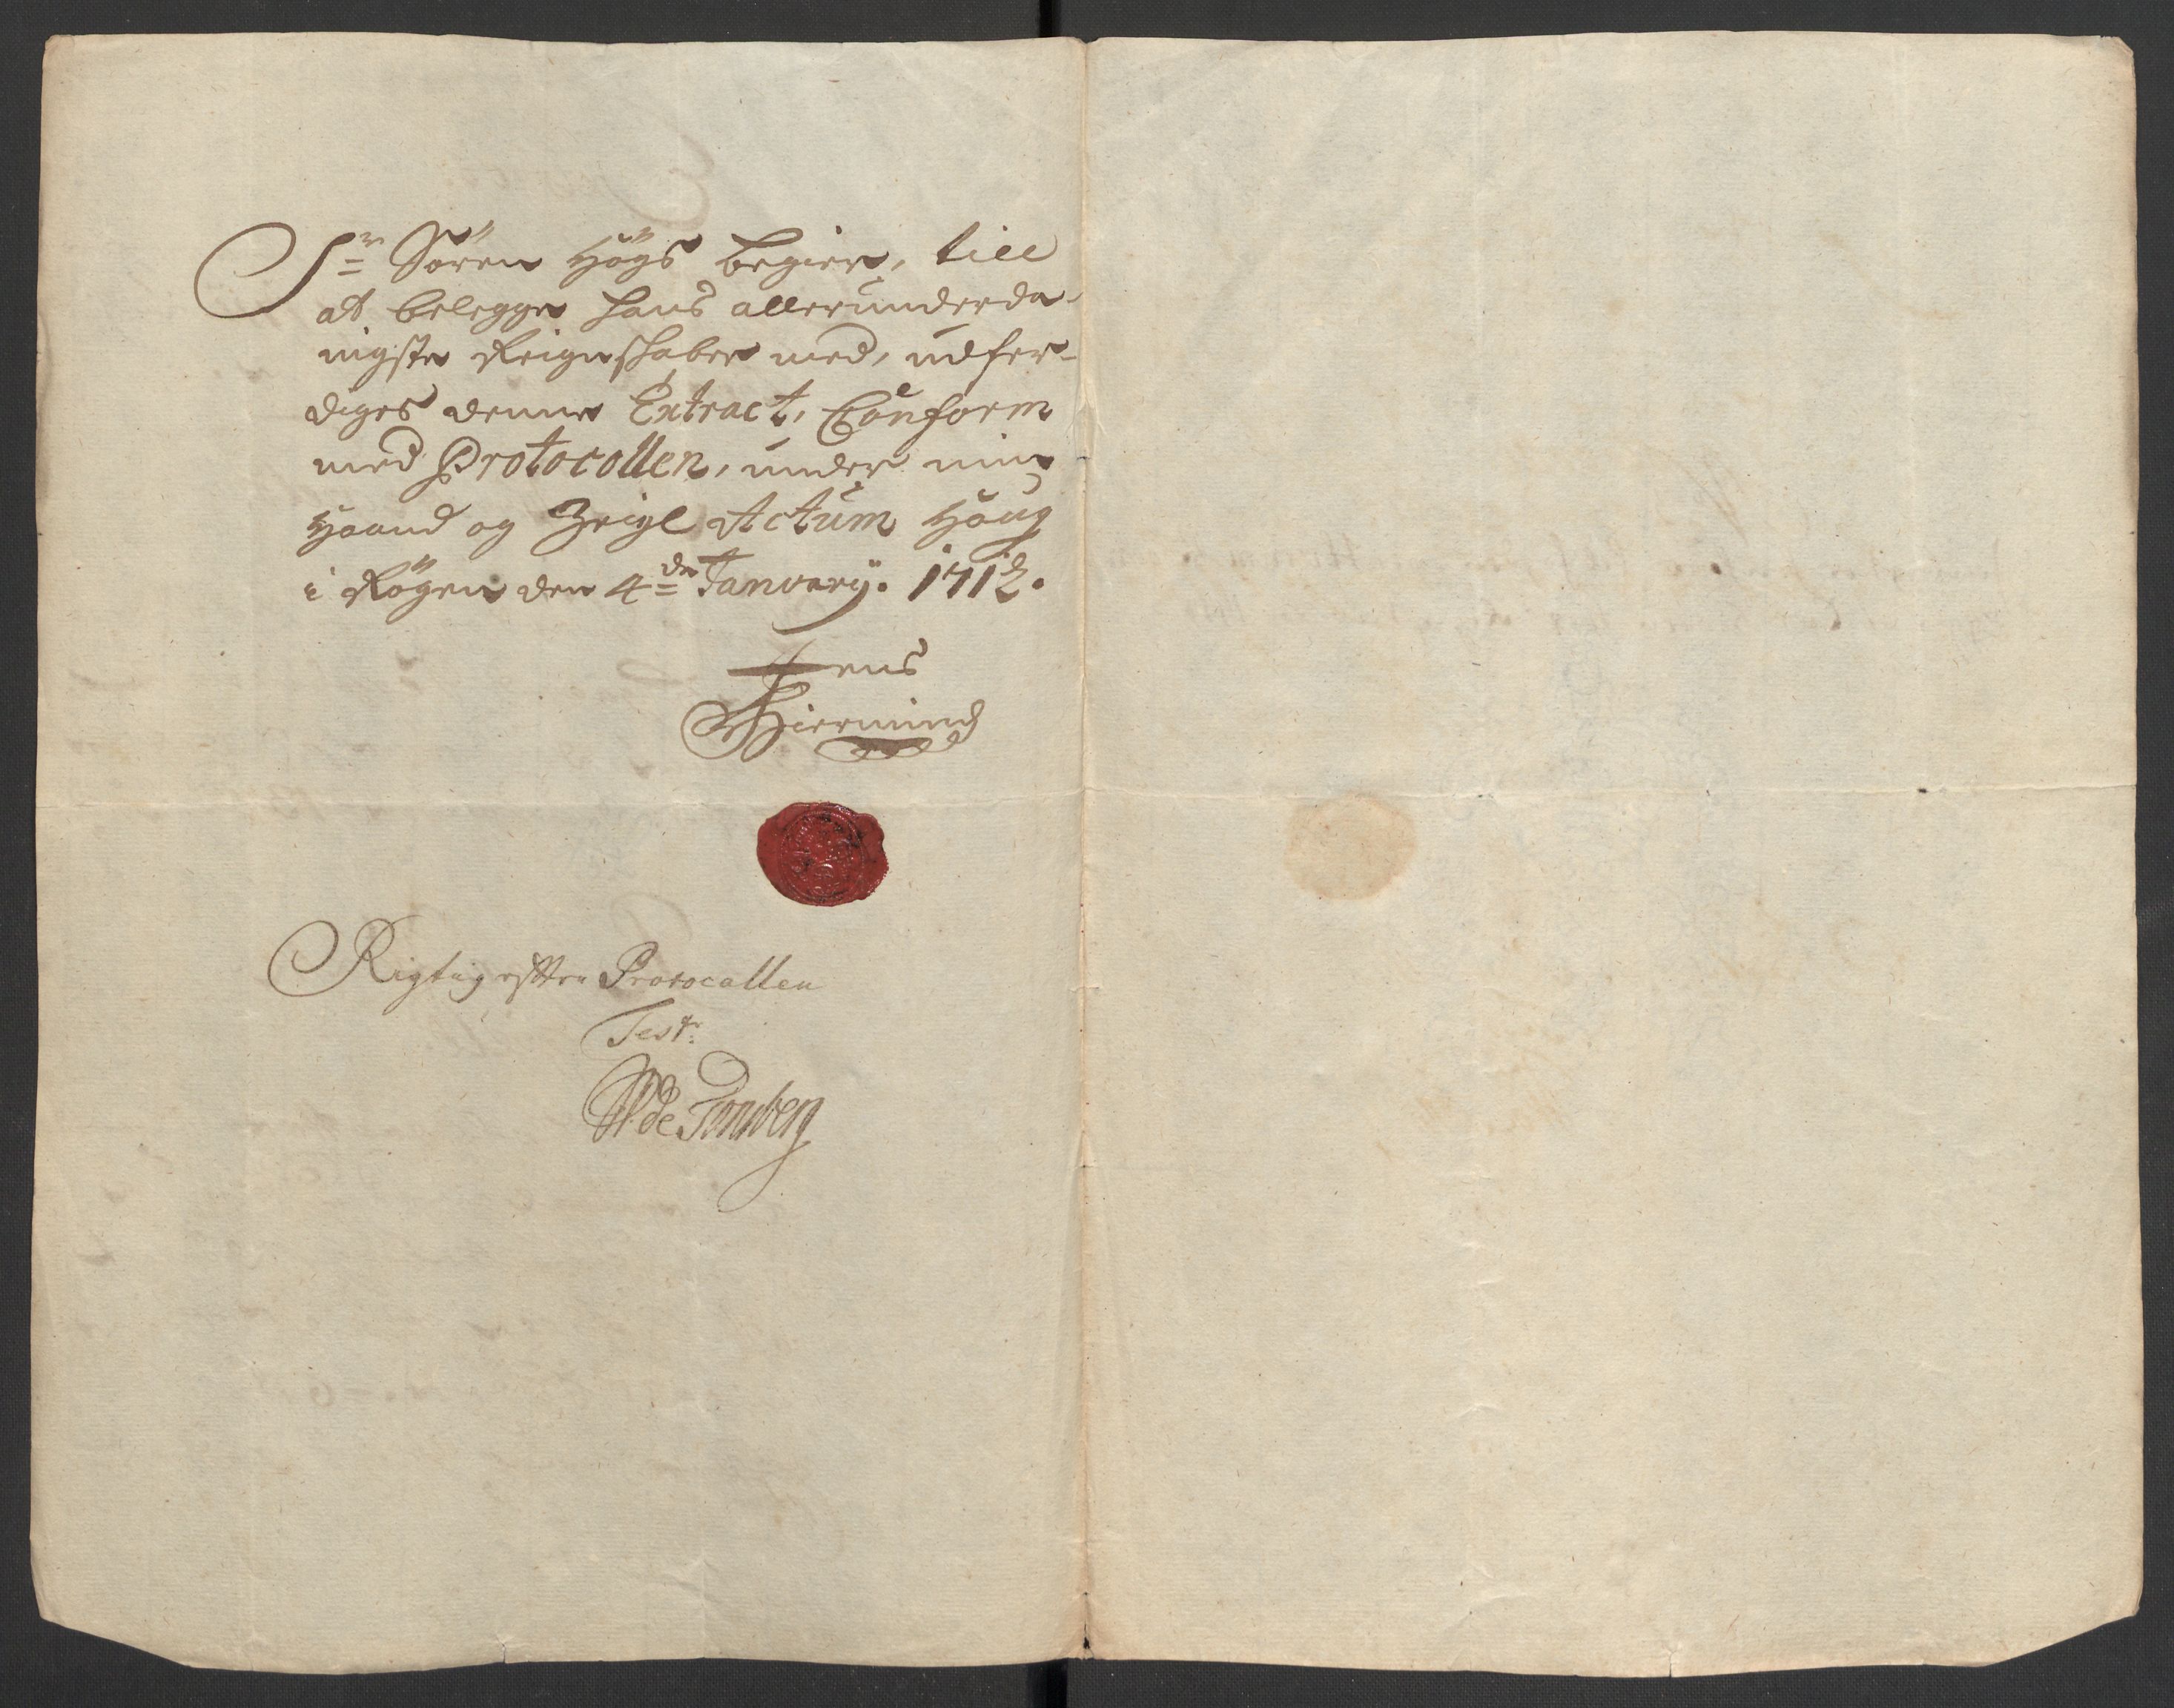 Sr Sören Högs begier, till
at belegge hans allerunderda-
nigste Reignskaber med, udfer-
diges denne Extract, Conform
med Protocollen, under min
Haand og Zeigl Actum Houg
i Rögen den 4de January. 1712.
Jens
Hiermind
Rigtig efter Protocollen
Test:
de Tonsberg